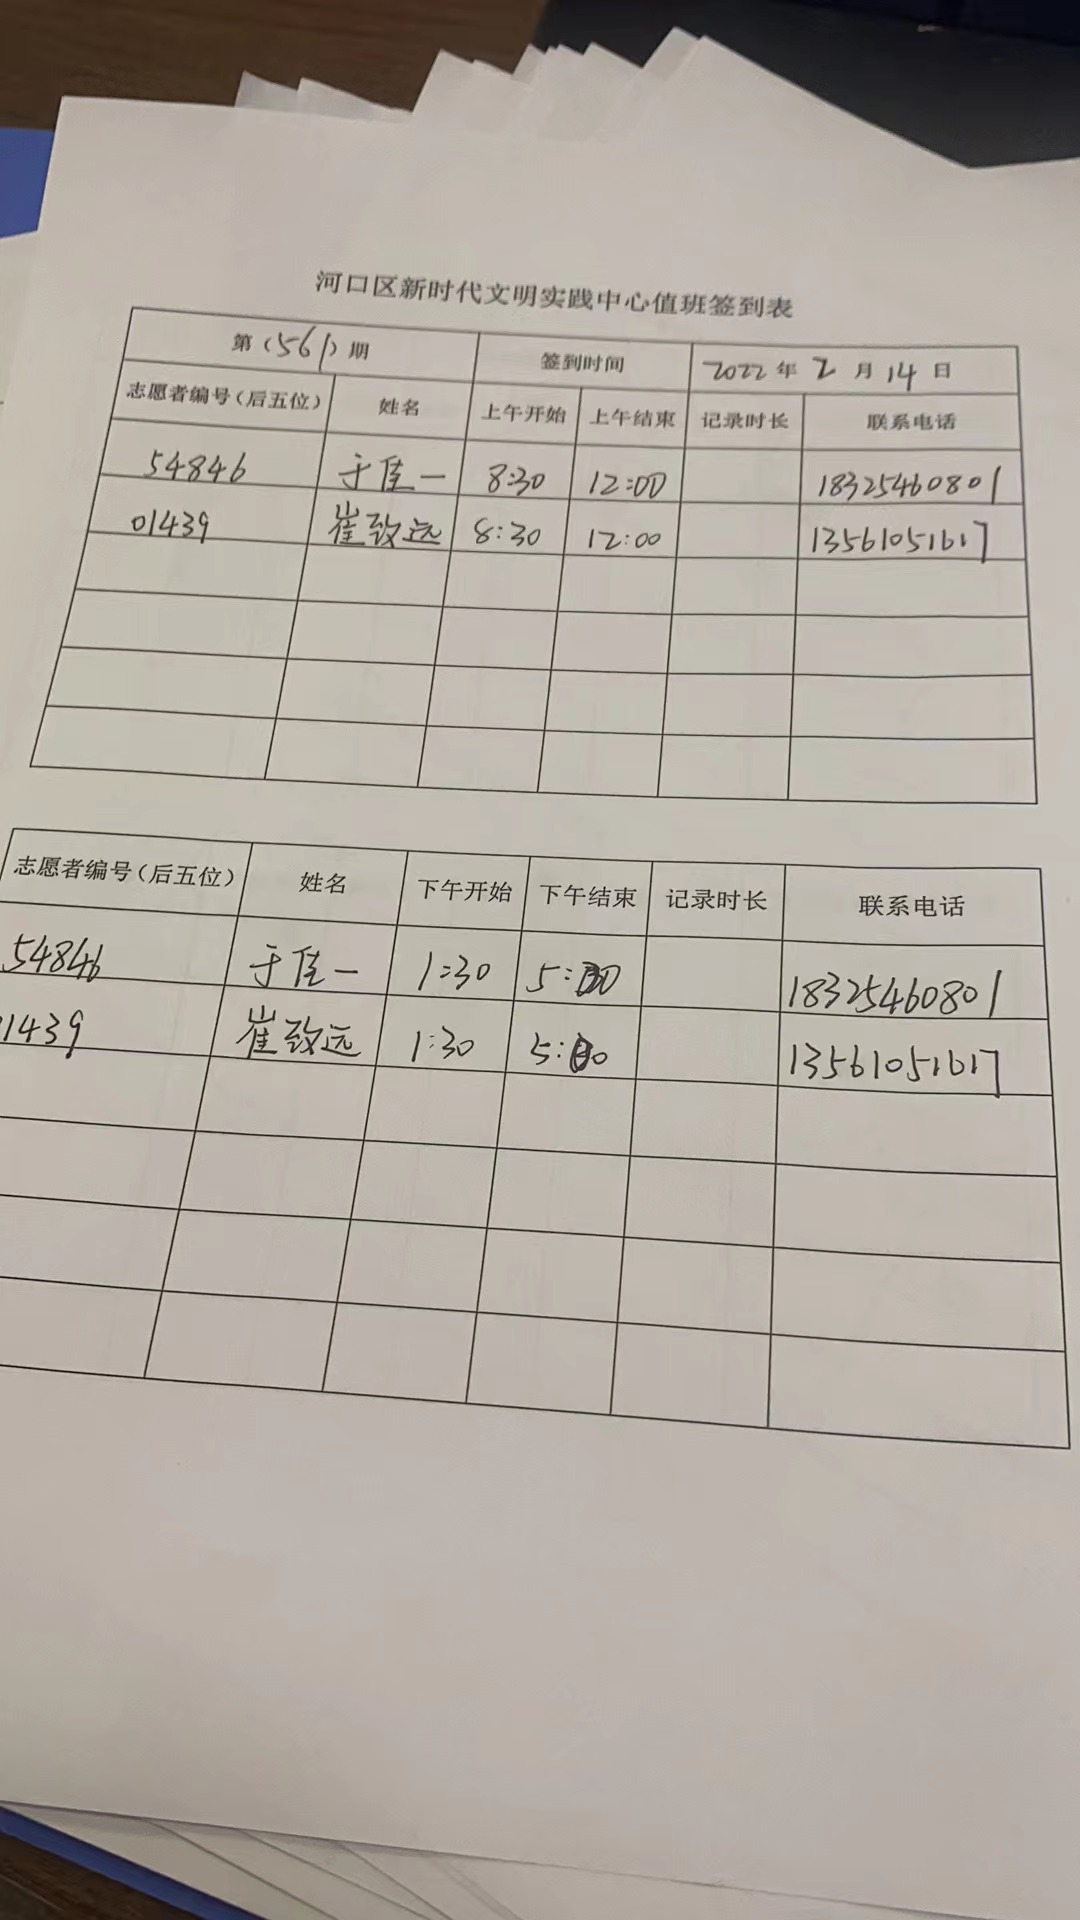 河口区新时代文明实践中心值班签到表
第(561)期 签到时间 2022年2月14日
志愿者编号(后五位) 姓名 上午开始 上午结束 记录时长 联系电话
54846 于佳一 8:30 12:00 18325460801
01439 崔致远 8:30 12:00 13561051617
志愿者编号(后五位) 姓名 下午开始 下午结束 记录时长 联系电话
54846 于佳一 1:30 18325460801
1439 崔致远 1:30 13561051617